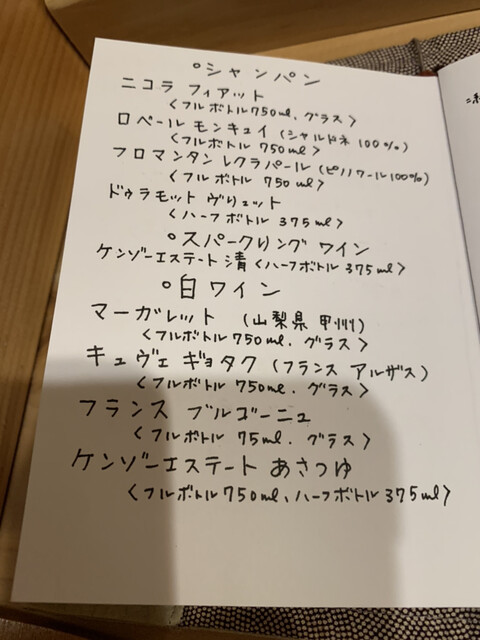 ○シャンパン
ニコラ フィアット
<フルボトル750ml、グラス>
ロベール モンキュイ (シャルドネ 100%)
<フルボトル750ml>
フロマンタン レクラパール (ピノノワール100%)
<フルボトル 750ml>
ドゥラモット ヴリュット
<ハーフボトル 375ml>
○スパークリング ワイン
ケンゾーエステート 清 <ハーフボトル 375ml>
○白ワイン
マーガレット (山梨県 甲州)
<フルボトル750ml、グラス>
キュヴェ ギョタク (フランス アルザス)
<フルボトル 750ml、グラス>
フランス ブルゴーニュ
<フルボトル 75ml、グラス>
ケンゾーエステート あさつゆ
<フルボトル750ml、ハーフボトル375ml>